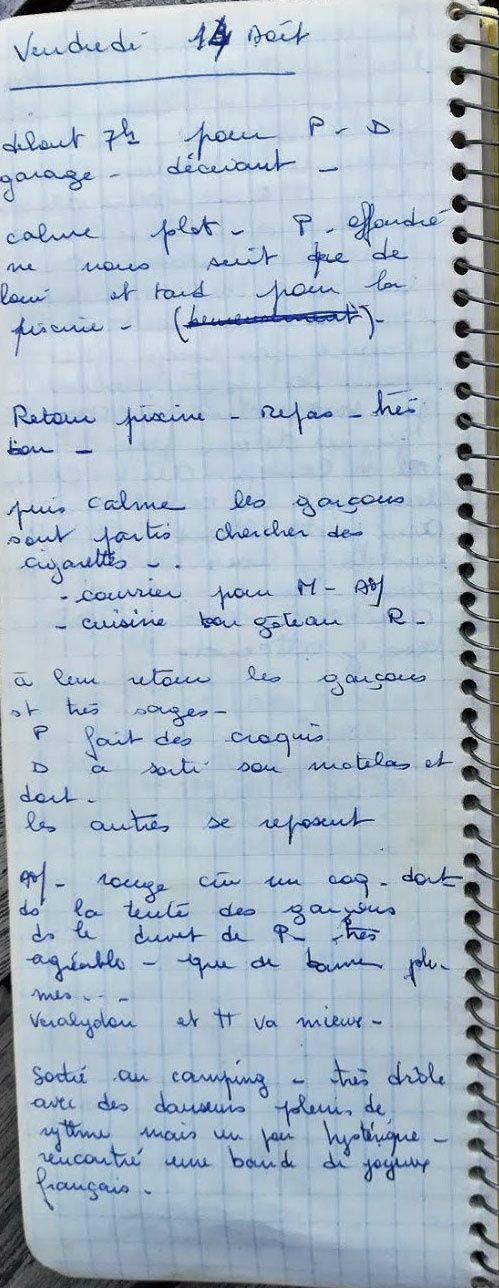 Vendredi 14 Août
debout 7h pour P - D
garage - décevant -
calme plat - P - effondré
ne nous suit que de
loin et tard pour la
piscine - ( ) -
Retour piscine - repas - très
bon -
puis calme les garçons
sont partis chercher des
cigarettes - .
- courrier pour M -
- cuisine bon gâteau R -
à leur retour les garçons
st très sages -
P fait des croquis
D a sorti son matelas et
dort -
les autres se reposent
- rouge cm un coq - dort
ds la tente des garçons
ds le duvet de P - très
agréable - que de bonnes plu-
mes - - -
Veralydon et tt va mieux -
Sortie au camping - très drôle
avec des danseurs pleins de
rythme mais un peu hystérique -
rencontré une bande de joyeux
français .